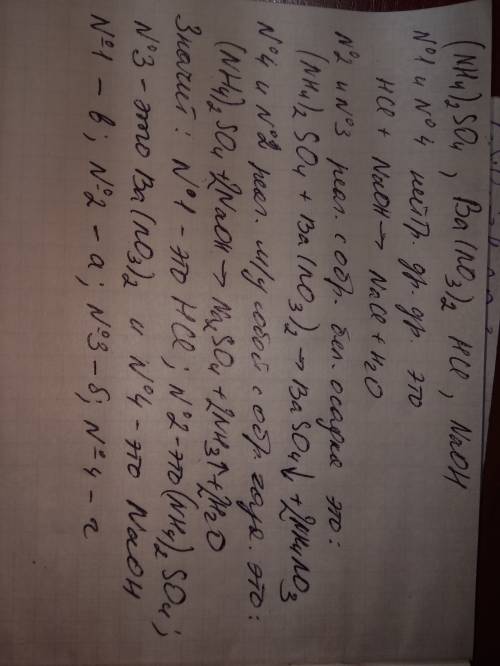 (NH4)2SO4, Ba(NO3)2 HCl, NaOH
№1 и №4 нейтр. др. др. это
HCl + NaOH → NaCl + H2O
№2 и №3 реаг. с обр. бел. осадка это:
(NH4)2SO4 + Ba(NO3)2 → BaSO4↓ + 2NH4NO3
№4 и №2 реаг. м/у собой с обр. газа. это:
(NH4)2SO4 + 2NaOH → Na2SO4 + 2NH3↑ + 2H2O
Значит: №1 - это HCl; №2 - это (NH4)2SO4;
№3 - это Ba(NO3)2 и №4 - это NaOH
№1 - в; №2 - а; №3 - б; №4 - г